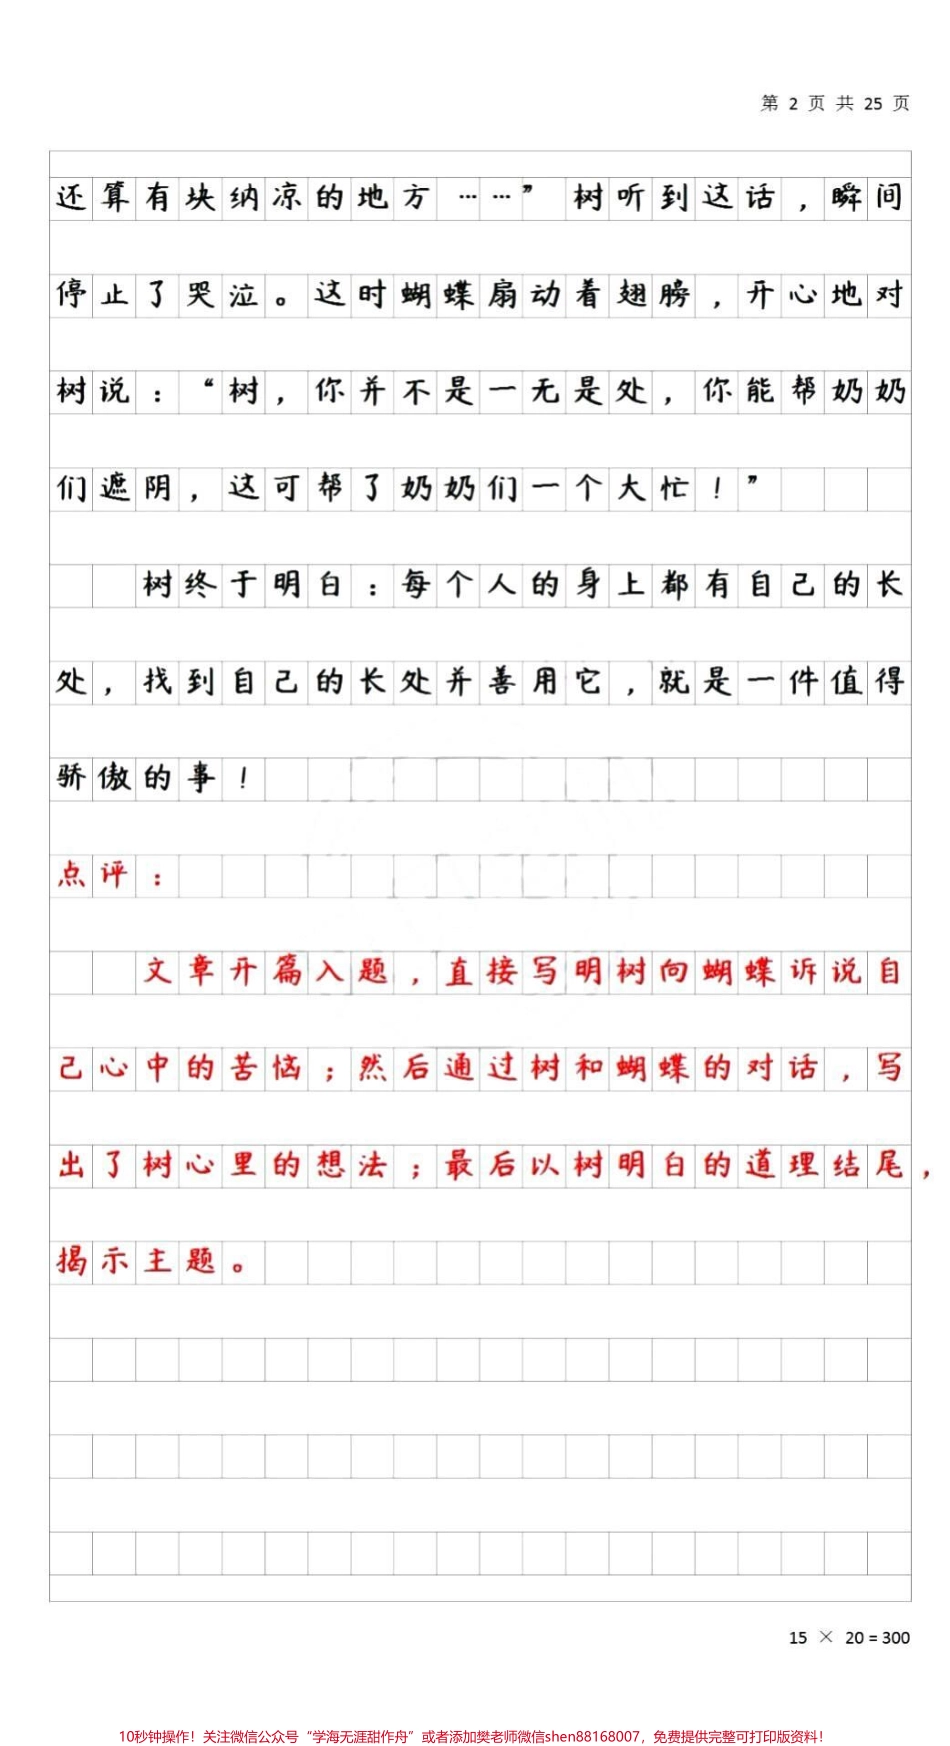 第 2 页 共 25 页
还算有块纳凉的地方……”树听到这话，瞬间
停止了哭泣。这时蝴蝶扇动着翅膀，开心地对
树说：“树，你并不是一无是处，你能帮奶奶
们遮阴，这可帮了奶奶们一个大忙！”
树终于明白：每个人的身上都有自己的长
处，找到自己的长处并善用它，就是一件值得
骄傲的事！
点评：
文章开篇入题，直接写明树向蝴蝶诉说自
己心中的苦恼；然后通过树和蝴蝶的对话，写
出了树心里的想法；最后以树明白的道理结尾，
揭示主题。
15 × 20 = 300
10秒钟操作！关注微信公众号“学海无涯甜作舟”或者添加樊老师微信shen88168007，免费提供完整可打印版资料！